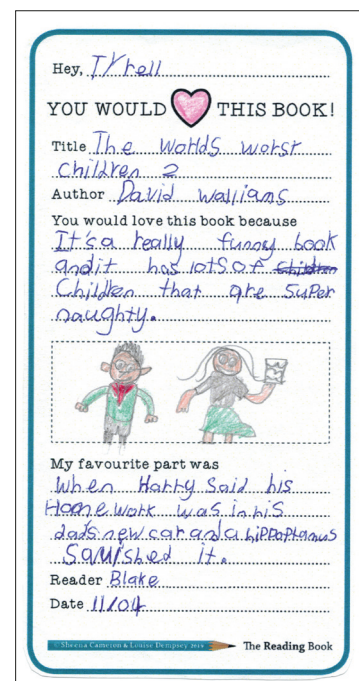 Hey, Tyrell
YOU WOULD THIS BOOK!
Title The worlds worst
children 2
Author David walliams
You would love this book because
It's a really funny book
and it has lots of children
Children that are super
naughty.
My favourite part was
When Harry said his
Homework was in his
dad's new car and a hippoptamus
Squished it.
Reader Blake
Date 11/04
© Sheena Cameron & Louise Dempsey 2019
The Reading Book